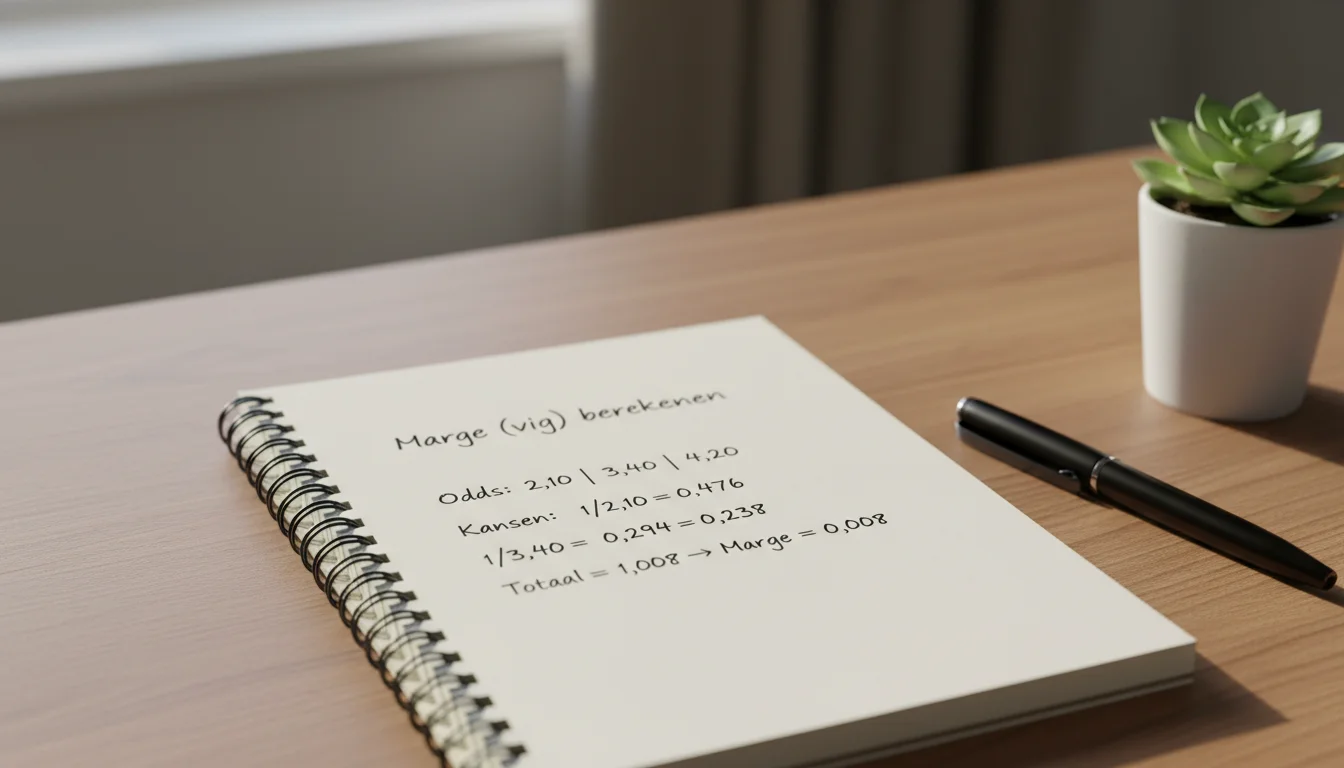 Marge (vig) berekenen
Odds: 2,10 \ 3,40 \ 4,20
Kansen: 1/2,10 = 0,476
1/3,40 = 0,294 = 0,238
Totaal = 1,008 → Marge = 0,008